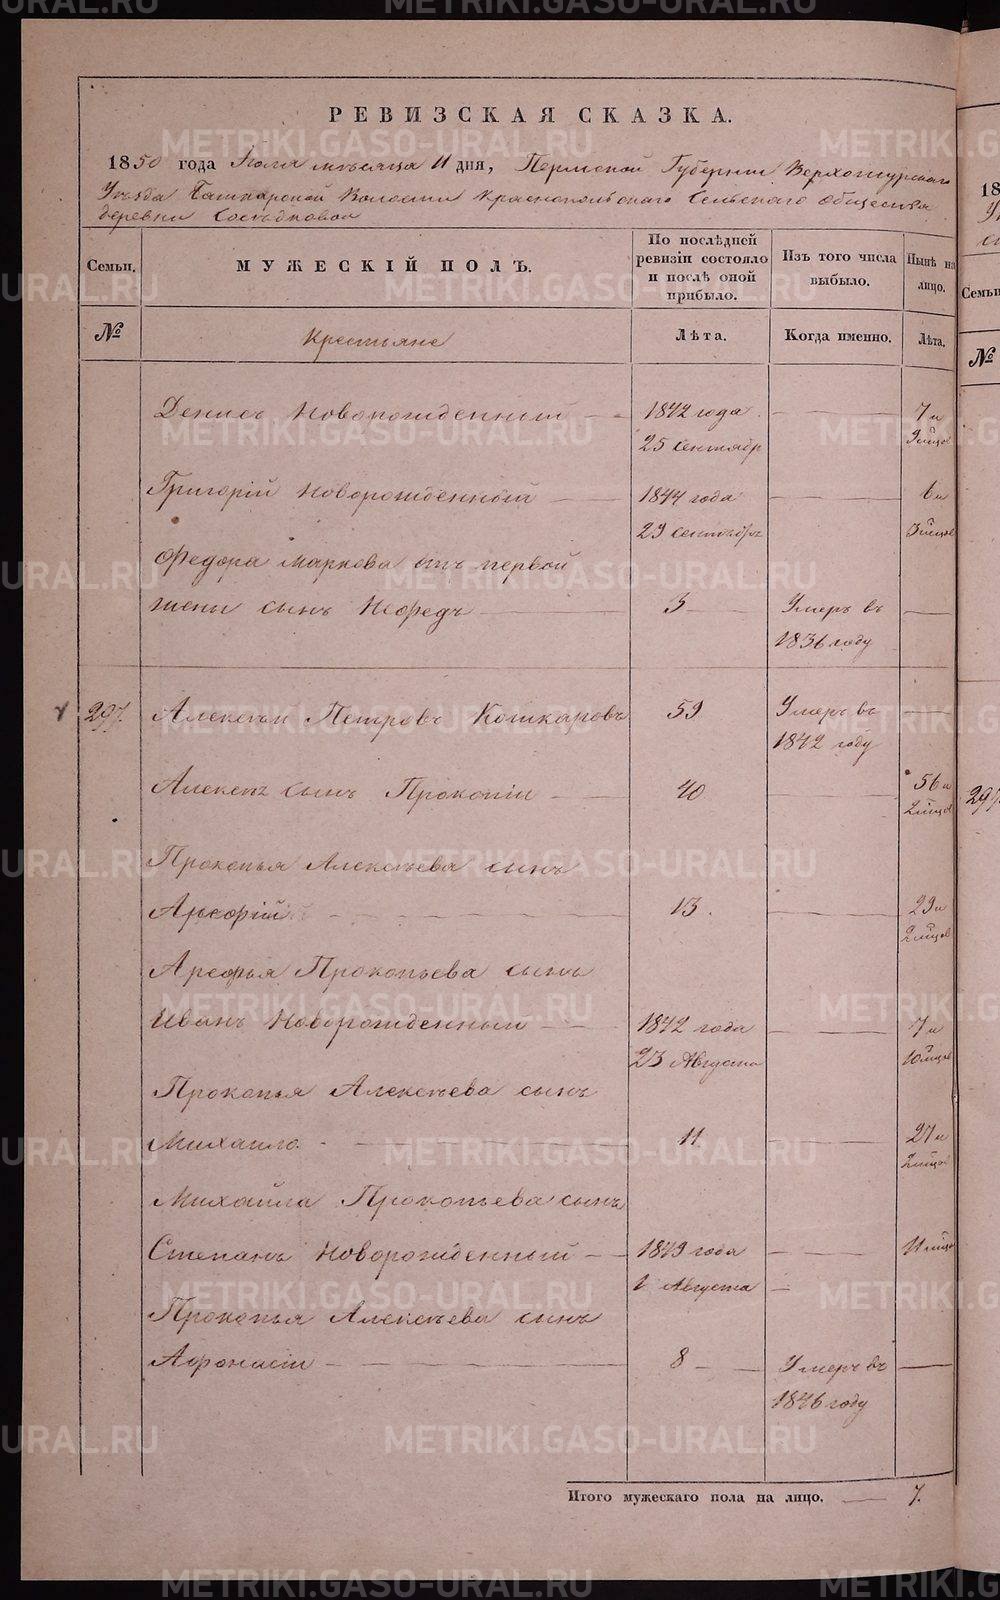 РЕВИЗСКАЯ СКАЗКА.
1850 года Июля месяца 11 дня, Пермской Губернии Верхотурскаго
Уезда Башкарской Волости Краснопольскаго Сельскаго Общества
деревни Соседковой
Семьи.
МУЖЕСКІЙ ПОЛЪ.
По послѣдней ревизіи состояло и послѣ оной прибыло.
Изъ того числа выбыло.
Нынѣ на лицо.
№
Крестьяне
Лѣта.
Когда именно.
Лѣта.
Денисъ Новорожденный 1842 года 7 и
25 сентябр 9 мцов
Григорій Новорожденный 1844 года 6 и
29 сентябр 3 мцов
Федора Маркова отъ первой
жены сынъ Нефедъ 3 Умеръ въ
1836 году
297. Алексѣй Петровъ Кошкаровъ 59 Умеръ въ
1842 году
Алексѣя сынъ Прокопій 40 56 и
2 мцов
Прокопья Алексѣева сынъ
Арефій 13. 29 и
2 мцов
Арефья Прокопьева сынъ
Иванъ Новорожденный 1842 года 7 и
23 Августа 10 мцов
Прокопья Алексѣева сынъ
Михайло 11 27 и
2 мцов
Михайла Прокопьева сынъ
Степанъ Новорожденный 1849 года 11 мцо
1 Августа
Прокопья Алексѣева сынъ
Афонасій 8 Умеръ въ
1846 году
Итого мужескаго пола на лицо. 7.
18
Семьи
№
297
METRIKI.GASO-URAL.RU